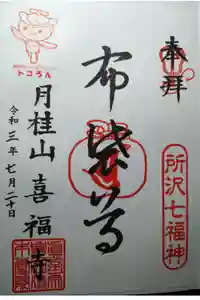 奉拝
所沢七福神
布袋尊
トコろん
月桂山喜福寺
令和三年七月二十日